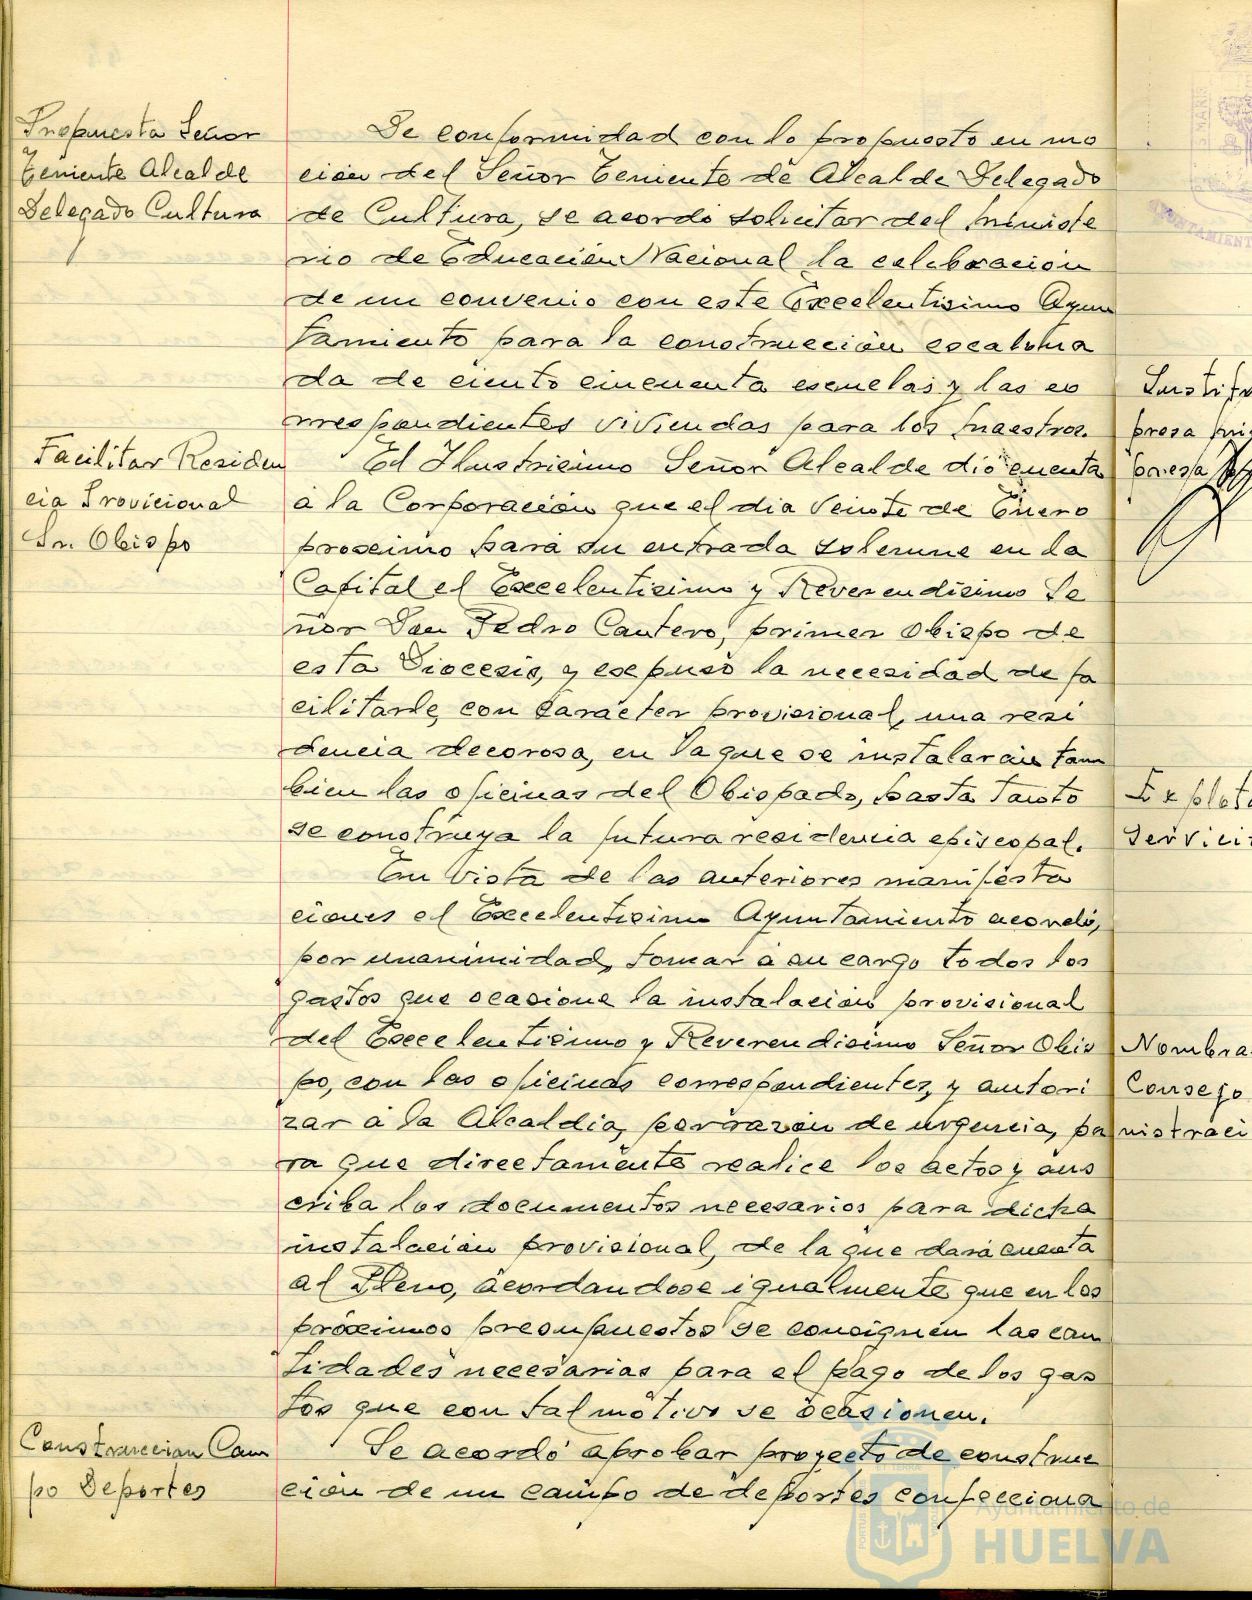 Propuesta Señor
Teniente Alcalde
Delegado Cultura
De conformidad con lo propuesto en mo
ción del Señor Teniente de Alcalde Delegado
de Cultura, se acordó solicitar del Ministe
rio de Educación Nacional la celebración
de un convenio con este Excelentisimo Ayun
tamiento para la construcción escalona
da de ciento cincuenta escuelas y las co
rrespondientes viviendas para los Maestros.
Facilitar Residen
cia Provicional
Sr. Obispo
El Ilustrisimo Señor Alcalde dió cuenta
á la Corporación que el dia veinte de Enero
proximo hará su entrada solemne en la
Capital el Excelentisimo y Reverendisimo Se
ñor Don Pedro Cantero, primer Obispo de
esta Diocesis, y expuso la necesidad de fa
cilitarle, con carácter provisional, una resi
dencia decorosa, en la que se instalarán tam
bien las oficinas del Obispado, hasta tanto
se construya la futura residencia episcopal.
En vista de las anteriores manifesta
ciones el Excelentisimo Ayuntamiento acordó,
por unanimidad, tomar á su cargo todos los
gastos que ocasione la instalación provisional
del Excelentisimo y Reverendisimo Señor Obis
po, con las oficinas correspondientes, y autori
zar á la Alcaldia, por razón de urgencia, pa
ra que directamente realice los actos y sus
criba los documentos necesarios para dicha
instalación provisional, de la que dará cuenta
al Pleno, acordandose igualmente que en los
próximos presupuestos se consignen las can
tidades necesarias para el pago de los gas
tos que con tal motivo se ocasionen.
Construccion Cam
po Deportes
Se acordó aprobar proyecto de construc
ción de un campo de deportes confecciona
presa
Explota
Servici
Nombra
Consejo
nistraci
AYUNTAMIENT
Ayuntamiento de
HUELVA